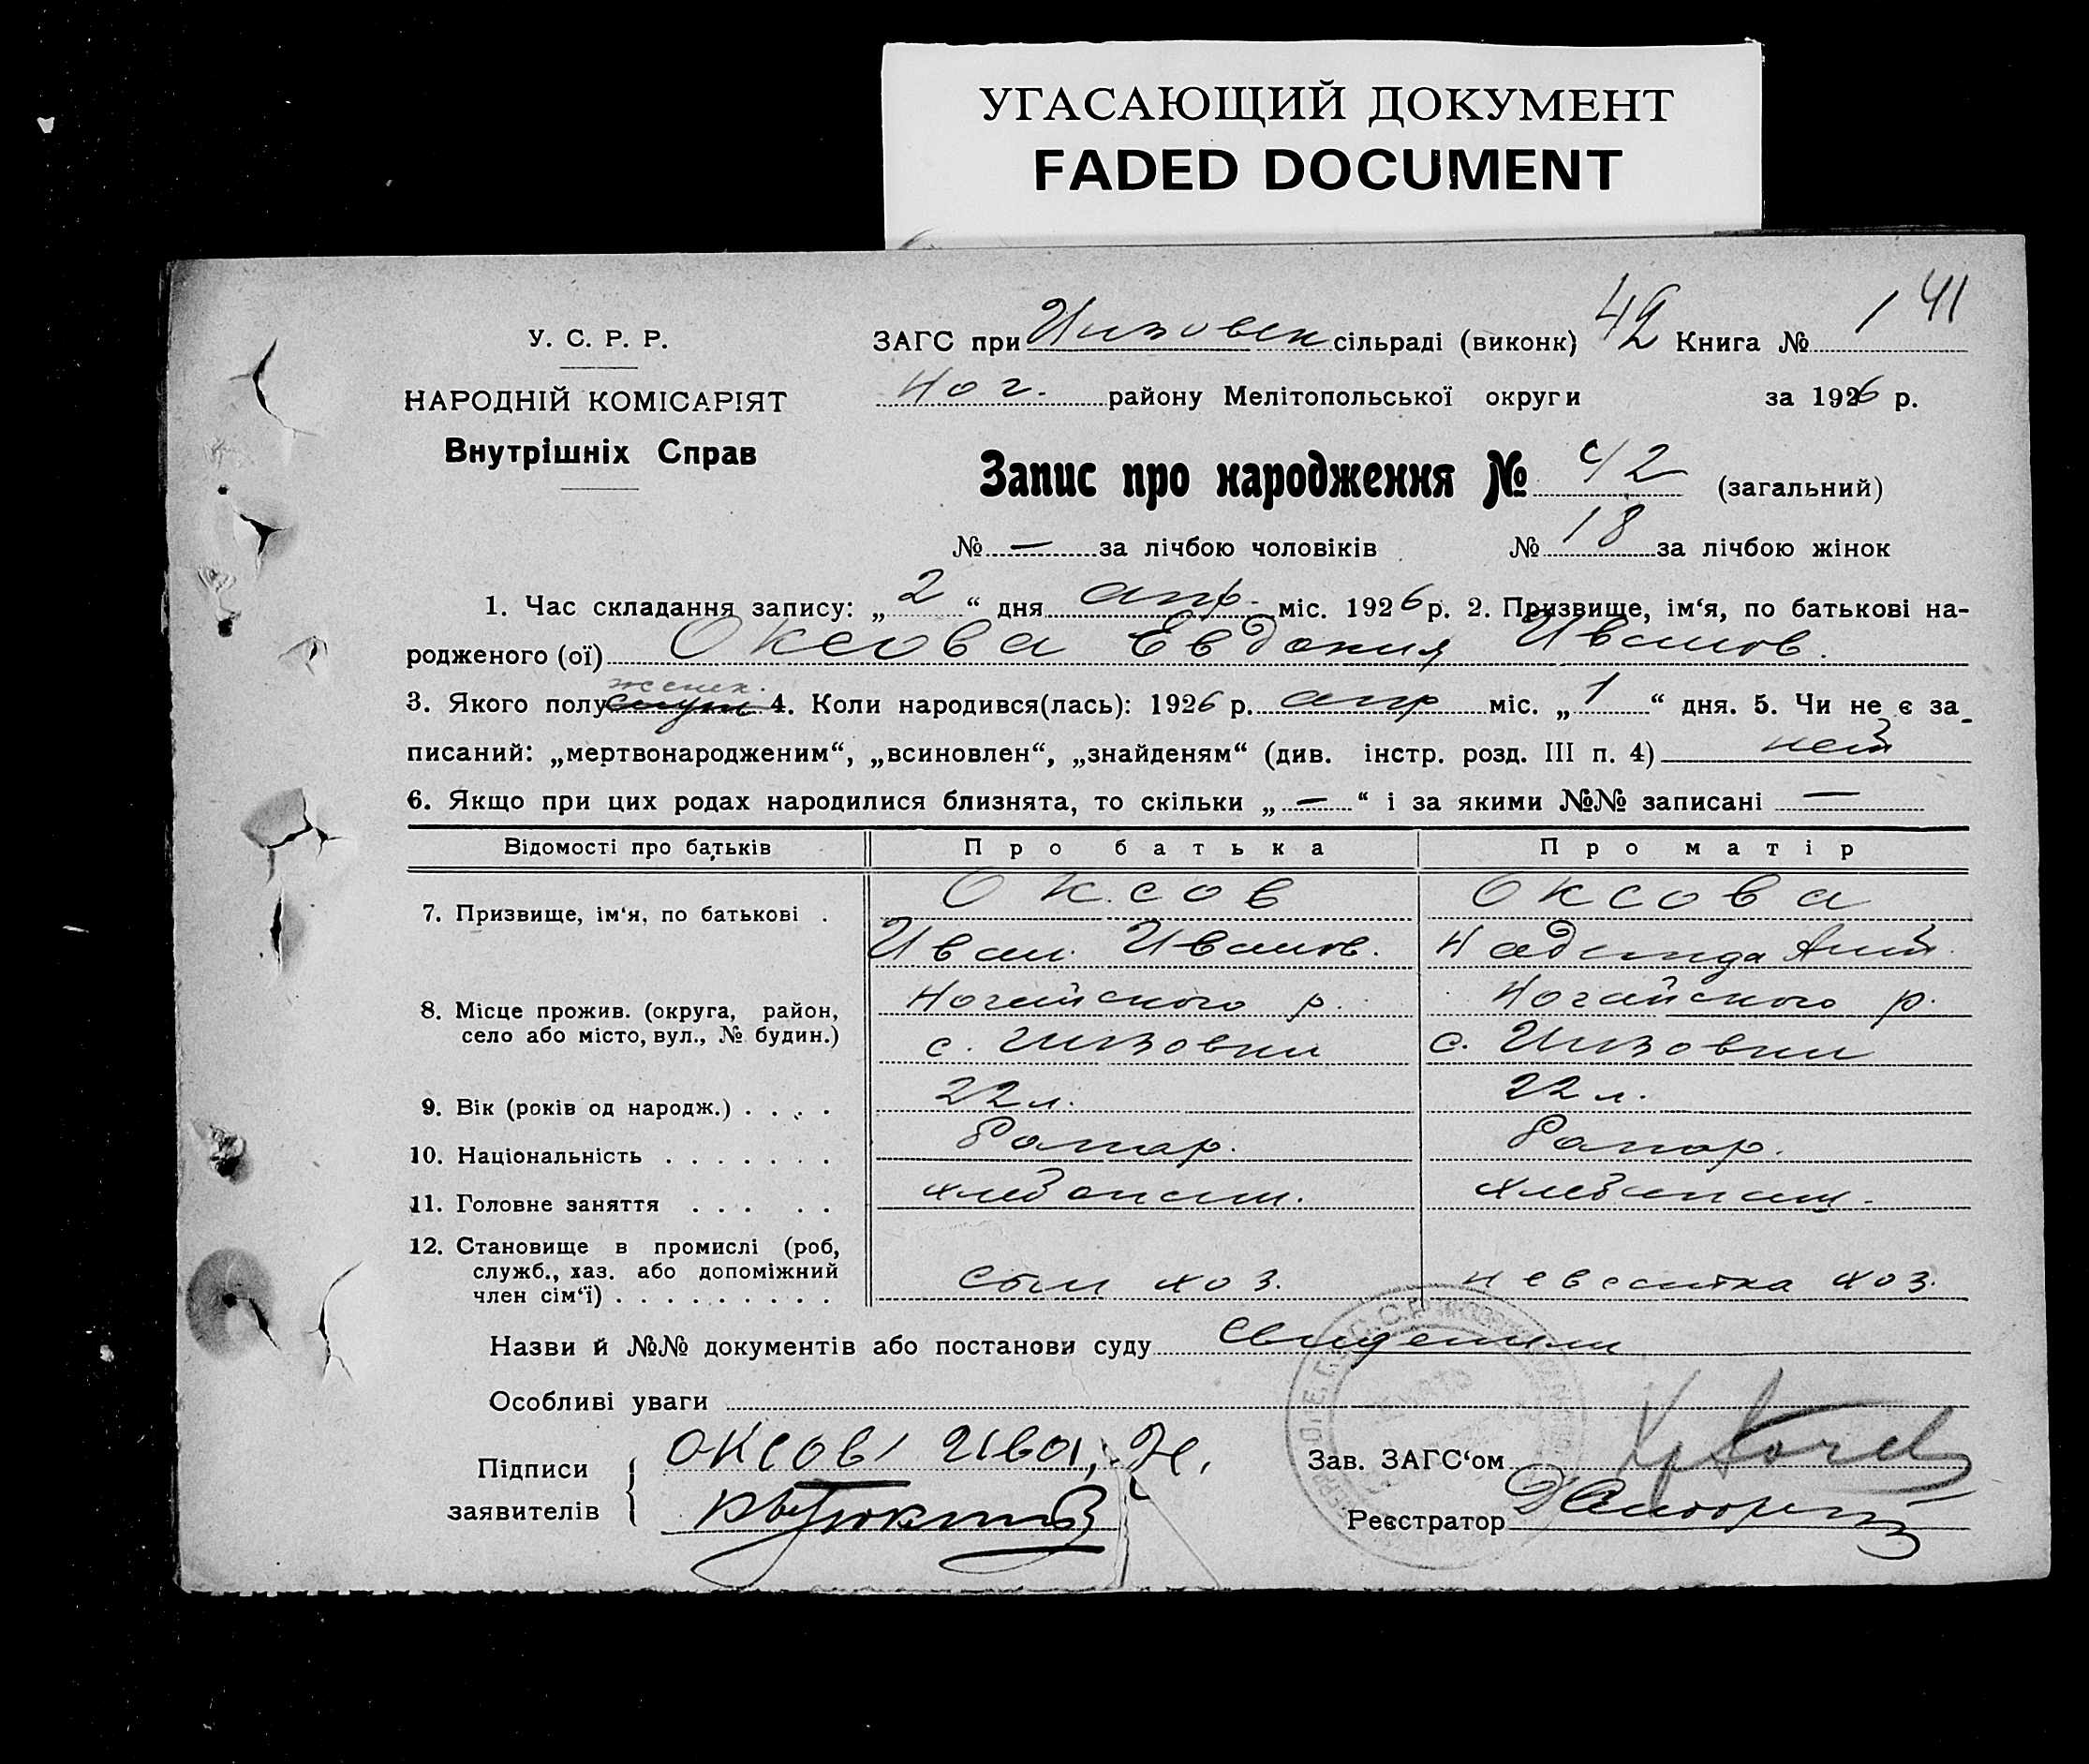 УГАСАЮЩИЙ ДОКУМЕНТ
FADED DOCUMENT
У. С. Р. Р.
НАРОДНІЙ КОМІСАРІЯТ
Внутрішніх Справ
ЗАГС при сільраді (виконк) 42 Книга № 1 41
Ног. району Мелітопольської округи за 1926 р.
Запис про народження № 42 (загальний)
№ — за лічбою чоловіків № 18 за лічбою жінок
1. Час складання запису: „ 2 “ дня апр. міс. 1926 р. 2. Призвище, ім‘я, по батькові на-
родженого (ої) Оксова Евдокия Иванов.
женск.
3. Якого полу 4. Коли народився(лась): 1926 р. апр міс. „ 1 “ дня. 5. Чи не є за-
писаний: „мертвонародженим“, „всиновлен“, „знайденям“ (див. інстр. розд. III п. 4) нет
6. Якщо при цих родах народилися близнята, то скільки „ — “ і за якими №№ записані —
Відомості про батьків Про батька Про матір
7. Призвище, ім‘я, по батькові . Оксов Оксова
Иван Иванов. Надежда Ант.
8. Місце прожив. (округа, район, Ногайского р. Ногайского р.
село або місто, вул., № будин.) с. с.
9. Вік (років од народж.) . . . . 22 л. 22 л.
10. Національність . . . . . . .
11. Головне заняття . . . . . хлебопаш. хлебопаш.
12. Становище в промислі (роб,
служб., хаз. або допоміжний
член сім‘ї) . . . . . . . . . сын хоз. невестка хоз.
Назви й №№ документів або постанови суду
Особливі уваги
Підписи
заявителів
Оксовъ Иван
Зав. ЗАГС‘ом
Реєстратор